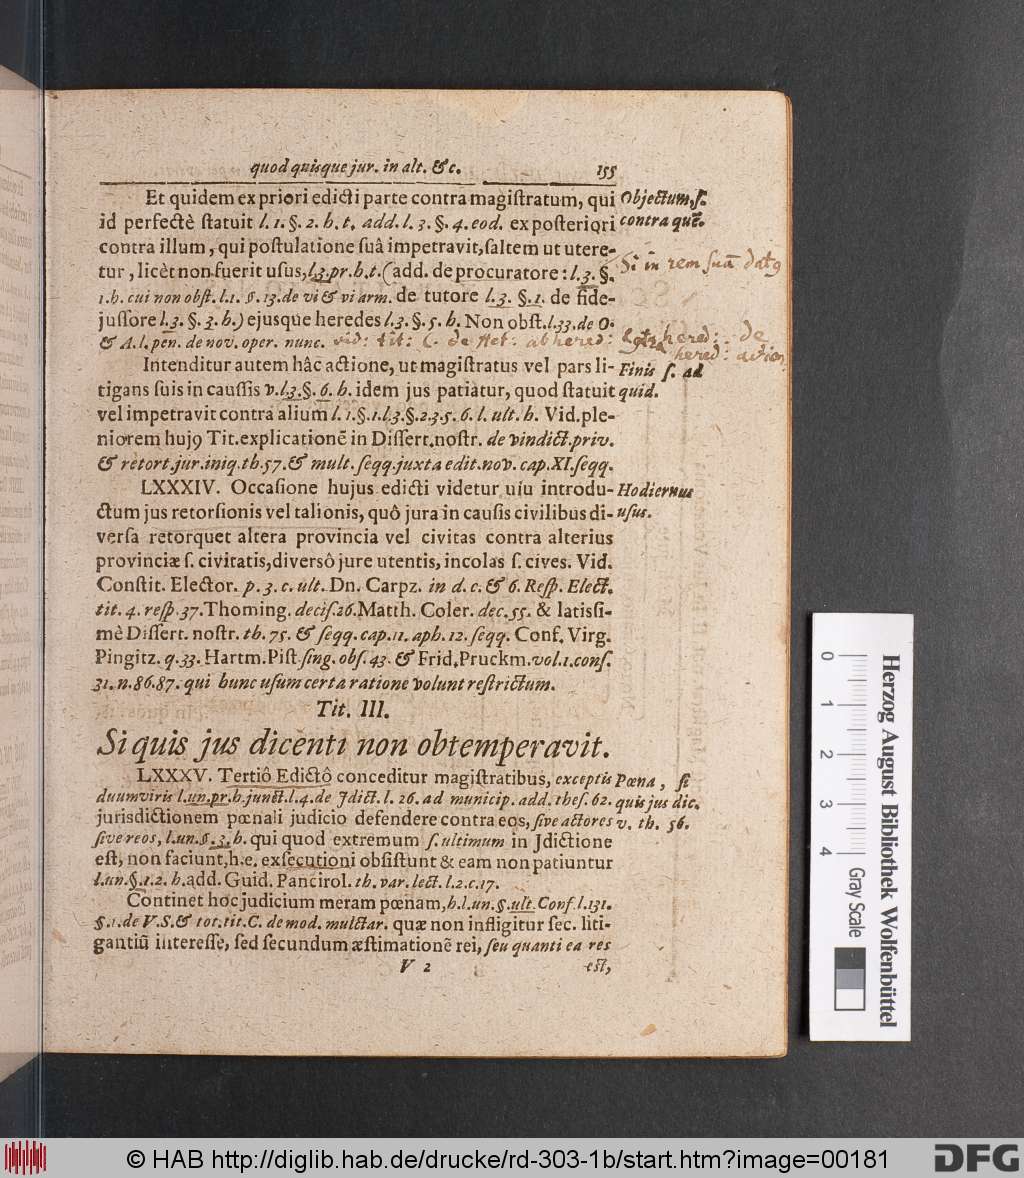 quod quisque jur. in alt. &c. 155
Et quidem ex priori edicti parte contra magiſtratum, qui
id perfectè ſtatuit l. 1. §. 2. h. t. add. l. 3. §. 4. eod. ex poſteriori
contra illum, qui poſtulatione ſuâ impetravit, ſaltem ut utere-
tur, licèt non fuerit uſus, l.3.pr.h.t. (add. de procuratore: l. 3. §.
1.h. cui non obſt. l.1. §. 13. de vi & vi arm. de tutore l. 3. §. 1. de fide-
juſſore l.3. §. 3. h.) ejusque heredes l.3. §. 5. h. Non obſt. l.33. de O.
& A. l. pen. de nov. oper. nunc. vid: tit: C. de her:
Intenditur autem hâc actione, ut magiſtratus vel pars li-
tigans ſuis in cauſſis v. l.3. §. 6. h. idem jus patiatur, quod ſtatuit
vel impetravit contra alium l. 1. §. 1. l.3. §. 2.3.5. 6. l. ult. h. Vid. ple-
niorem hujꝰ Tit. explicationẽ in Diſſert. noſtr. de vindict. priv.
& retort. jur. iniq. th. 57. & mult. ſeqq. juxta edit. nov. cap. XI. ſeqq.
LXXXIV. Occaſione hujus edicti videtur uſu introdu-
ctum jus retorſionis vel talionis, quô jura in cauſis civilibus di-
verſa retorquet altera provincia vel civitas contra alterius
provinciæ ſ. civitatis, diversô jure utentis, incolas ſ. cives. Vid.
Conſtit. Elector. p. 3. c. ult. Dn. Carpz. in d. c. & 6. Reſp. Elect.
tit. 4. reſp. 37. Thoming. deciſ. 26. Matth. Coler. dec. 55. & latisſi-
mè Diſſert. noſtr. th. 75. & ſeqq. cap. 11. aph. 12. ſeqq. Conf. Virg.
Pingitz. q. 33. Hartm. Piſt. ſing. obſ. 43. & Frid. Pruckm. vol. 1. conſ.
31. n. 86. 87. qui hunc uſum certa ratione volunt reſtrictum.
Tit. III.
Si quis jus dicenti non obtemperavit.
LXXXV. Tertiô Edictô conceditur magiſtratibus, exceptis
duumviris l. un. pr. h. junct. l. 4. de Jdict. l. 26. ad municip. add. theſ. 62.
jurisdictionem pœnali judicio defendere contra eos, ſive actores
ſive reos, l. un. §. 3. h. qui quod extremum ſ. ultimum in Jdictione
eſt, non faciunt, h.e. exſecutioni obſiſtunt & eam non patiuntur
l. un. §. 1. 2. h. add. Guid. Pancirol. th. var. lect. l. 2. c. 17.
Continet hoc judicium meram pœnam, h. l. un. §. ult. Conf. l. 131.
§. 1. de V. S. & tot. tit. C. de mod. mulctar. quæ non infligitur ſec. liti-
gantiũ intereſſe, ſed ſecundum æſtimationẽ rei, ſeu quanti ea res
V 2 eſt,
Objectum, ſ.
contra quẽ.
Si in rem suã datꝰ
hered: de
hered: action
Finis ſ. ad
quid.
Hodiernus
uſus.
Pœna, ſi
quis jus dic.
v. th. 56.
0 1 2 3 4
Gray Scale
Herzog August Bibliothek Wolfenbüttel
© HAB http://diglib.hab.de/drucke/rd-303-1b/start.htm?image=00181
DFG